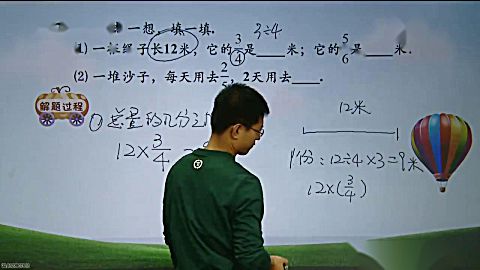 想一想，填一填. 3÷4
(1) 一根绳子长12米，它的3/4是____米；它的5/6是____米.
(2) 一堆沙子，每天用去2/5，2天用去____.
解题过程
① 总量的几分之
12×3/4
12米
1份：12÷4×3=9米
12×(3/4)